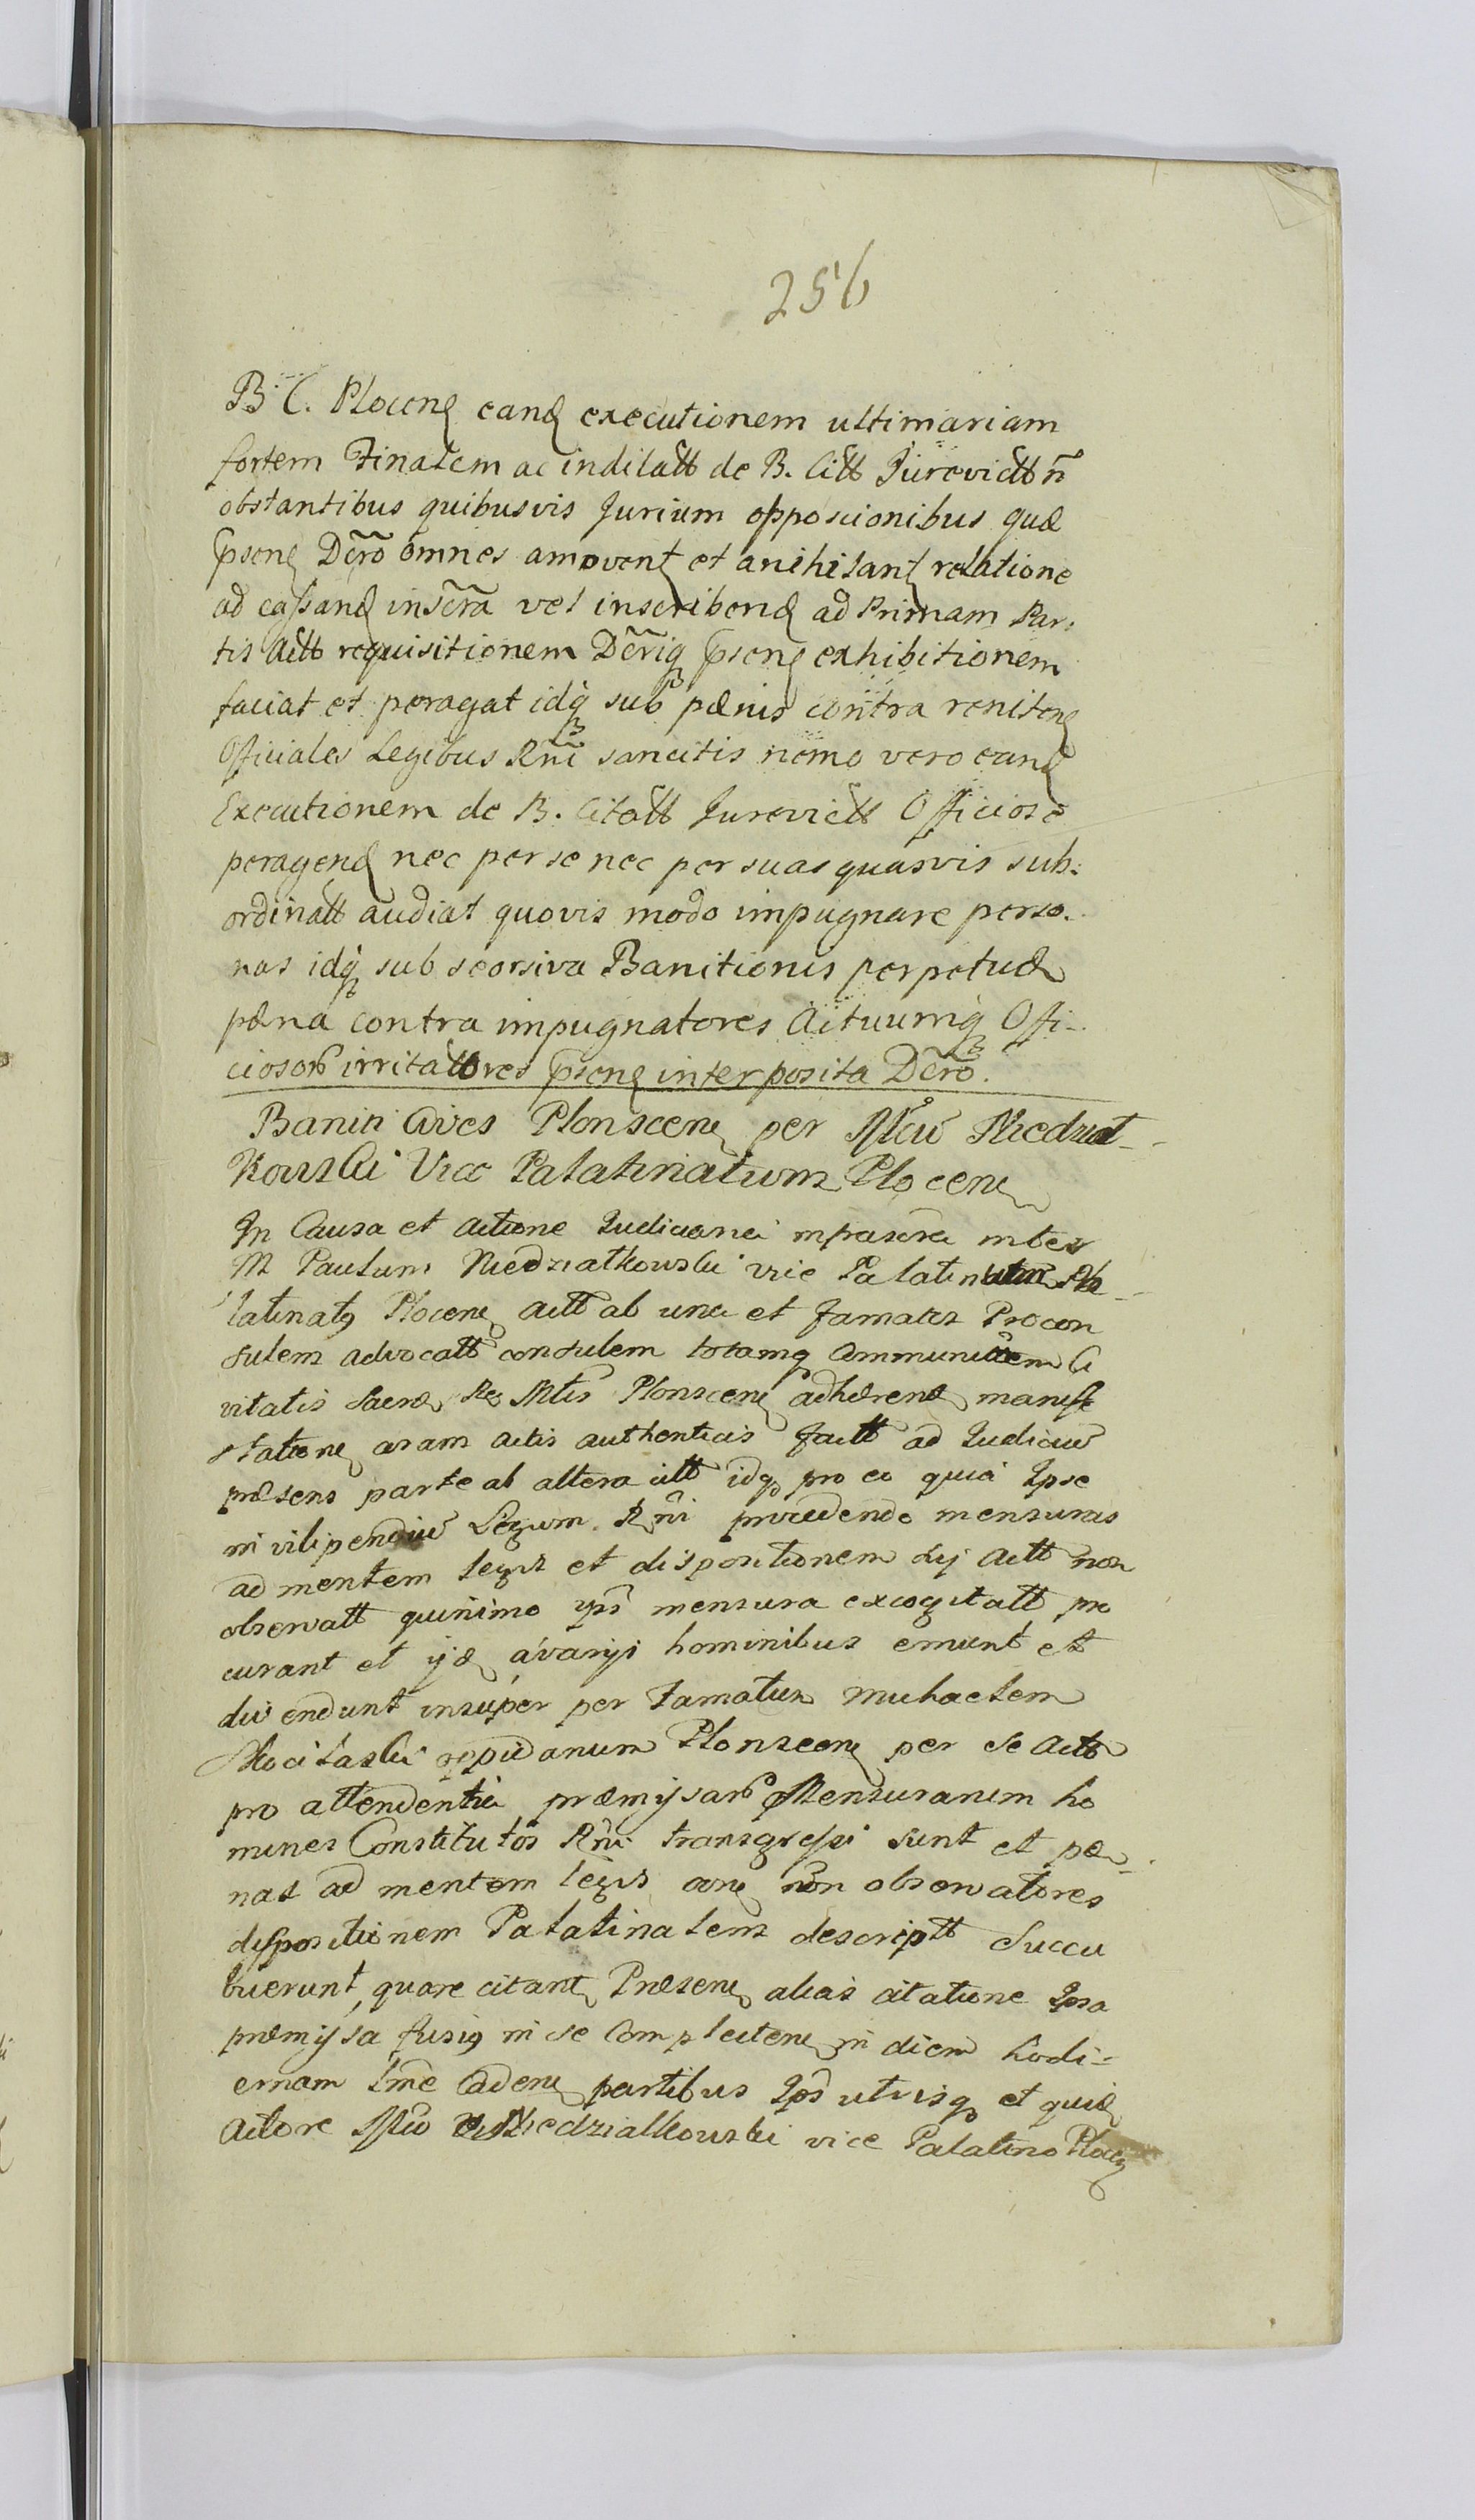 256
B. C. Plocen eand executionem ultimariam
fortem Finalem ac indilatt de B. Citt Jurevictt ñ
obstantibus quibusvis Jurium opposcionibus quæ
psen Dcro omnes amovent et anihilant relatione
ad cassand inscra vel inscribend ad Primam Par:
tis Actt requisitionem Dcriq psen exhibitionem
faciat et peragat idq sub pænis contra reniten
Officiales Legibus Rni sancitis nemo vero eand
Executionem de B. Citatt Jurevictt Officiose
peragend nec per se nec per suas quasvis sub:
ordinatt audiat quovis modo impugnare perso.
nas idq sub seorsiva Banitionis perpetuæ
pæna contra impugnatores Actuumq Offi-
ciosor irritattores psen interposita Dcro.
Baniti Cives Plonscen per Mcu Niedziat-
Kowski Vice Palatinatum Plocen
In Causa et actione Judiciaria inter
M Paulum Niedziatkowski vice Pa
latinats Plocen actt ab una et famates Procon
sulem advocatt consulem totamq Communitem Ci
vitatis Sacræ Re Mtis Plonscen adhæren manife
station coram actis authenticis factt ad Judiciu
præsens parte ab altera citt idq pro eo quia Ipse
in vilipendiu Legum Rni providendo mensuras
ad mentem legis et dispositionem dij Actt non
observatt quinimo ips mensura excogitatt pro
curant et ijd avarijs hominibus emunt et
divendunt insuper per Famatum Michaelem
opidanum Plonscen per se Actt
pro attendentia præmijsar Mensurarum ho
mines Constitutos Rni transgressi sunt et pæ-
nas ad mentem legis non observatores
dispositionem Palatinalem descriptt Succu
buerunt, quare citant Præsen alias citatione Ipsa
præmijsa fusis in se Complecten in diem hodi=
ernam Caden partibus Ips utrisq et quid
Actore Mco Niedzialkowski vice Palatino Ploc